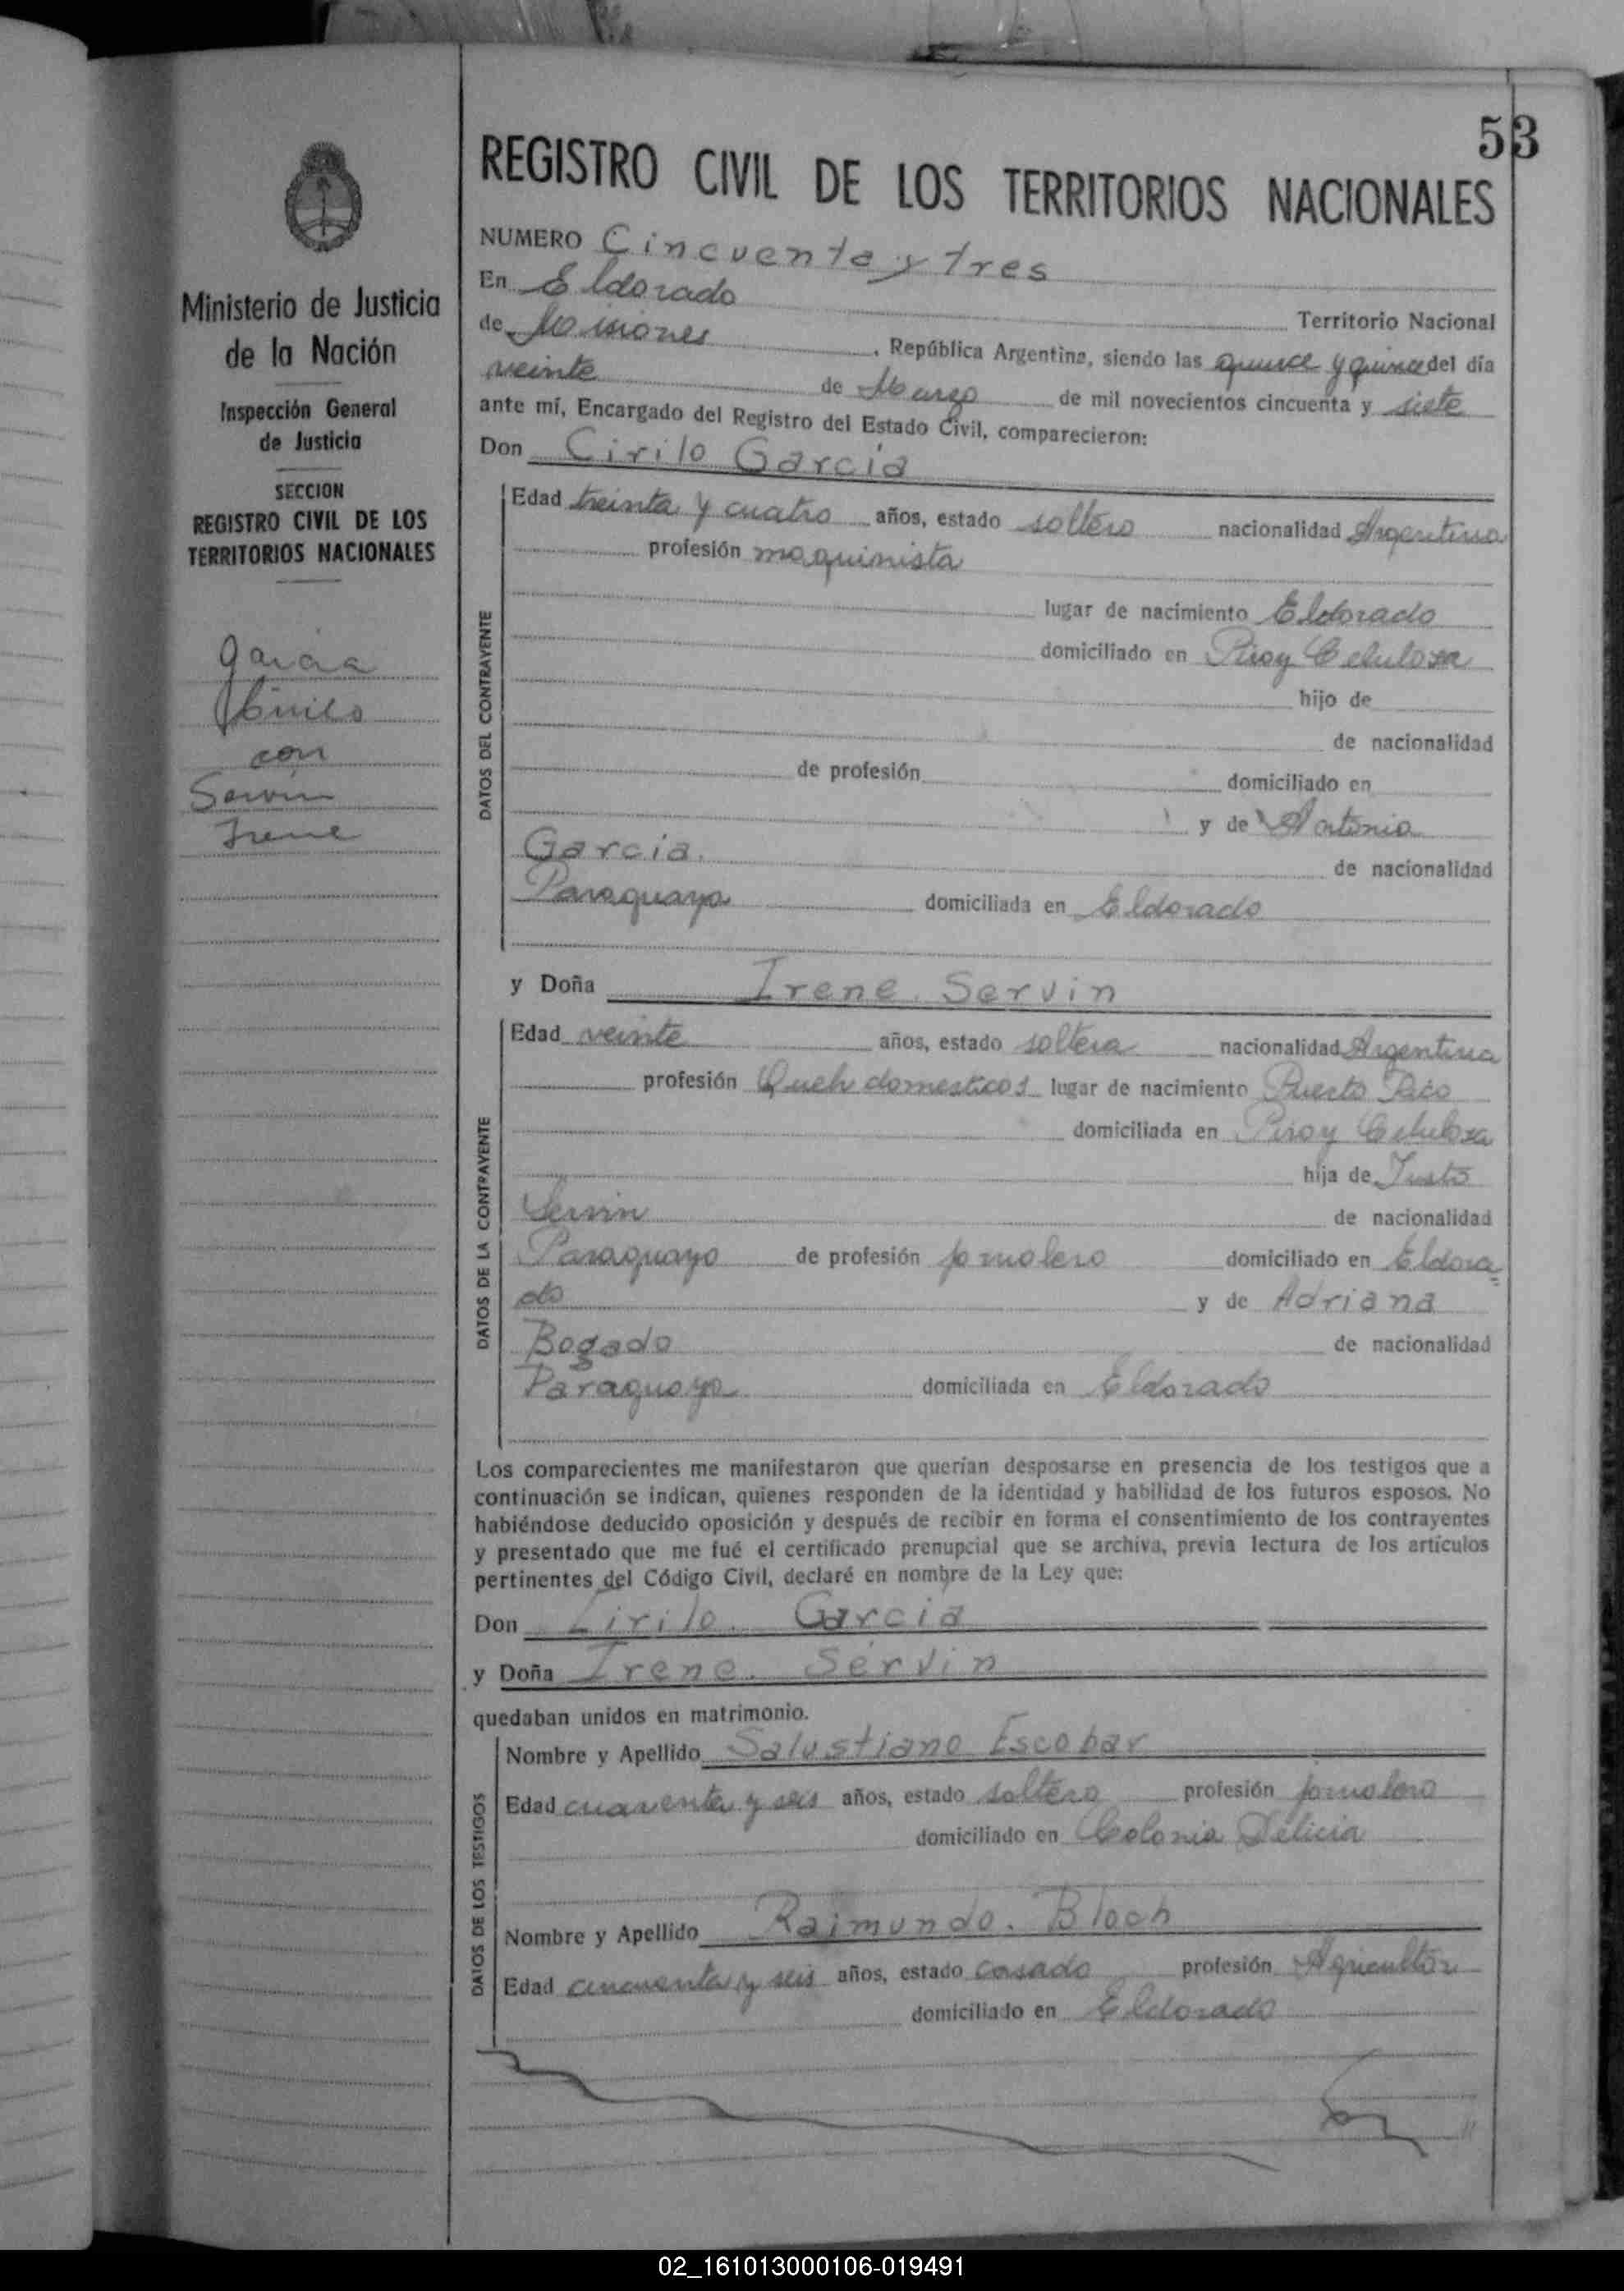 53
REGISTRO CIVIL DE LOS TERRITORIOS NACIONALES
Ministerio de Justicia
de la Nación
Inspección General
de Justicia
SECCION
REGISTRO CIVIL DE LOS
TERRITORIOS NACIONALES
Garcia
Cirilo
con
Servin
Irene
NUMERO Cincuenta y tres
En Eldorado
Territorio Nacional
de Misiones, República Argentina, siendo las quince y quince del día
veinte de Marzo de mil novecientos cincuenta y siete
ante mí, Encargado del Registro del Estado Civil, comparecieron:
Don Cirilo García
DATOS DEL CONTRAYENTE
Edad treinta y cuatro años, estado soltero nacionalidad Argentina
profesión maquinista
lugar de nacimiento Eldorado
domiciliado en Piray Celulosa
hijo de
de nacionalidad
de profesión domiciliado en
y de Antonia
Garcia. de nacionalidad
Paraguaya domiciliada en Eldorado
y Doña Irene Servin
DATOS DE LA CONTRAYENTE
Edad veinte años, estado soltera nacionalidad Argentina
profesión Queh domesticos lugar de nacimiento Puerto Pico
domiciliada en Piray Celulosa
hija de Justo
Servin de nacionalidad
Paraguayo de profesión jornalero domiciliado en Eldora
do y de Adriana
Bogado de nacionalidad
Paraguaya domiciliada en Eldorado
Los comparecientes me manifestaron que querían desposarse en presencia de los testigos que a
continuación se indican, quienes responden de la identidad y habilidad de los futuros esposos. No
habiéndose deducido oposición y después de recibir en forma el consentimiento de los contrayentes
y presentado que me fué el certificado prenupcial que se archiva, previa lectura de los artículos
pertinentes del Código Civil, declaré en nombre de la Ley que:
Don Cirilo. Garcia
y Doña Irene. Servin
quedaban unidos en matrimonio.
DATOS DE LOS TESTIGOS
Nombre y Apellido Salustiano Escobar
Edad cuarenta y seis años, estado soltero profesión jornalero
domiciliado en Colonia Delicia
Nombre y Apellido Raimundo. Bloch
Edad cincuenta y seis años, estado casado profesión Agricultor
domiciliado en Eldorado
02_161013000106-019491